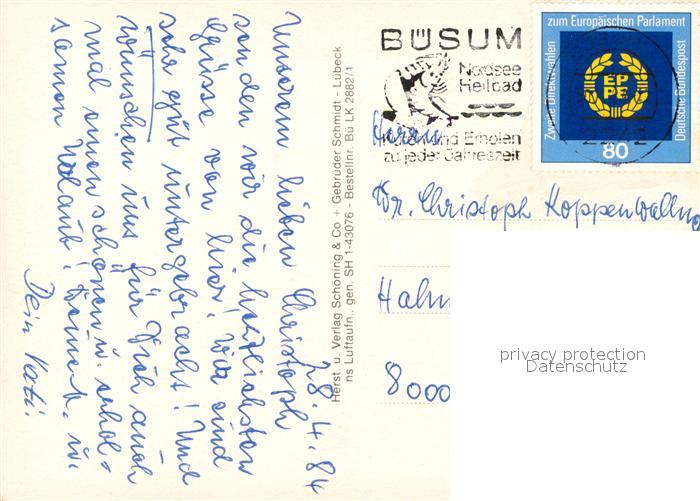 28.4.84
Unserem lieben Christoph
senden wir die herzlichsten
Grüsse von hier. Wir sind
sehr gut untergebracht! Und
wünschen uns für Dich auch
mal einen schönen u. erhol-
samen Urlaub! u.
Dein Vati.
Herst. u. Verlag Schöning & Co + Gebrüder Schmidt - Lübeck
ns Luftaufn., gen. SH 1-43076 - Bestellnr. Bü LK 2882/1
BÜSUM
Nordsee
Heilbad
und Erholen
zu jeder Jahreszeit
Zweite Direktwahlen
zum Europäischen Parlament
Deutsche Bundespost
EP
PE
80
Herrn
Dr. Christoph Koppenwallner
8000
privacy protection
Datenschutz